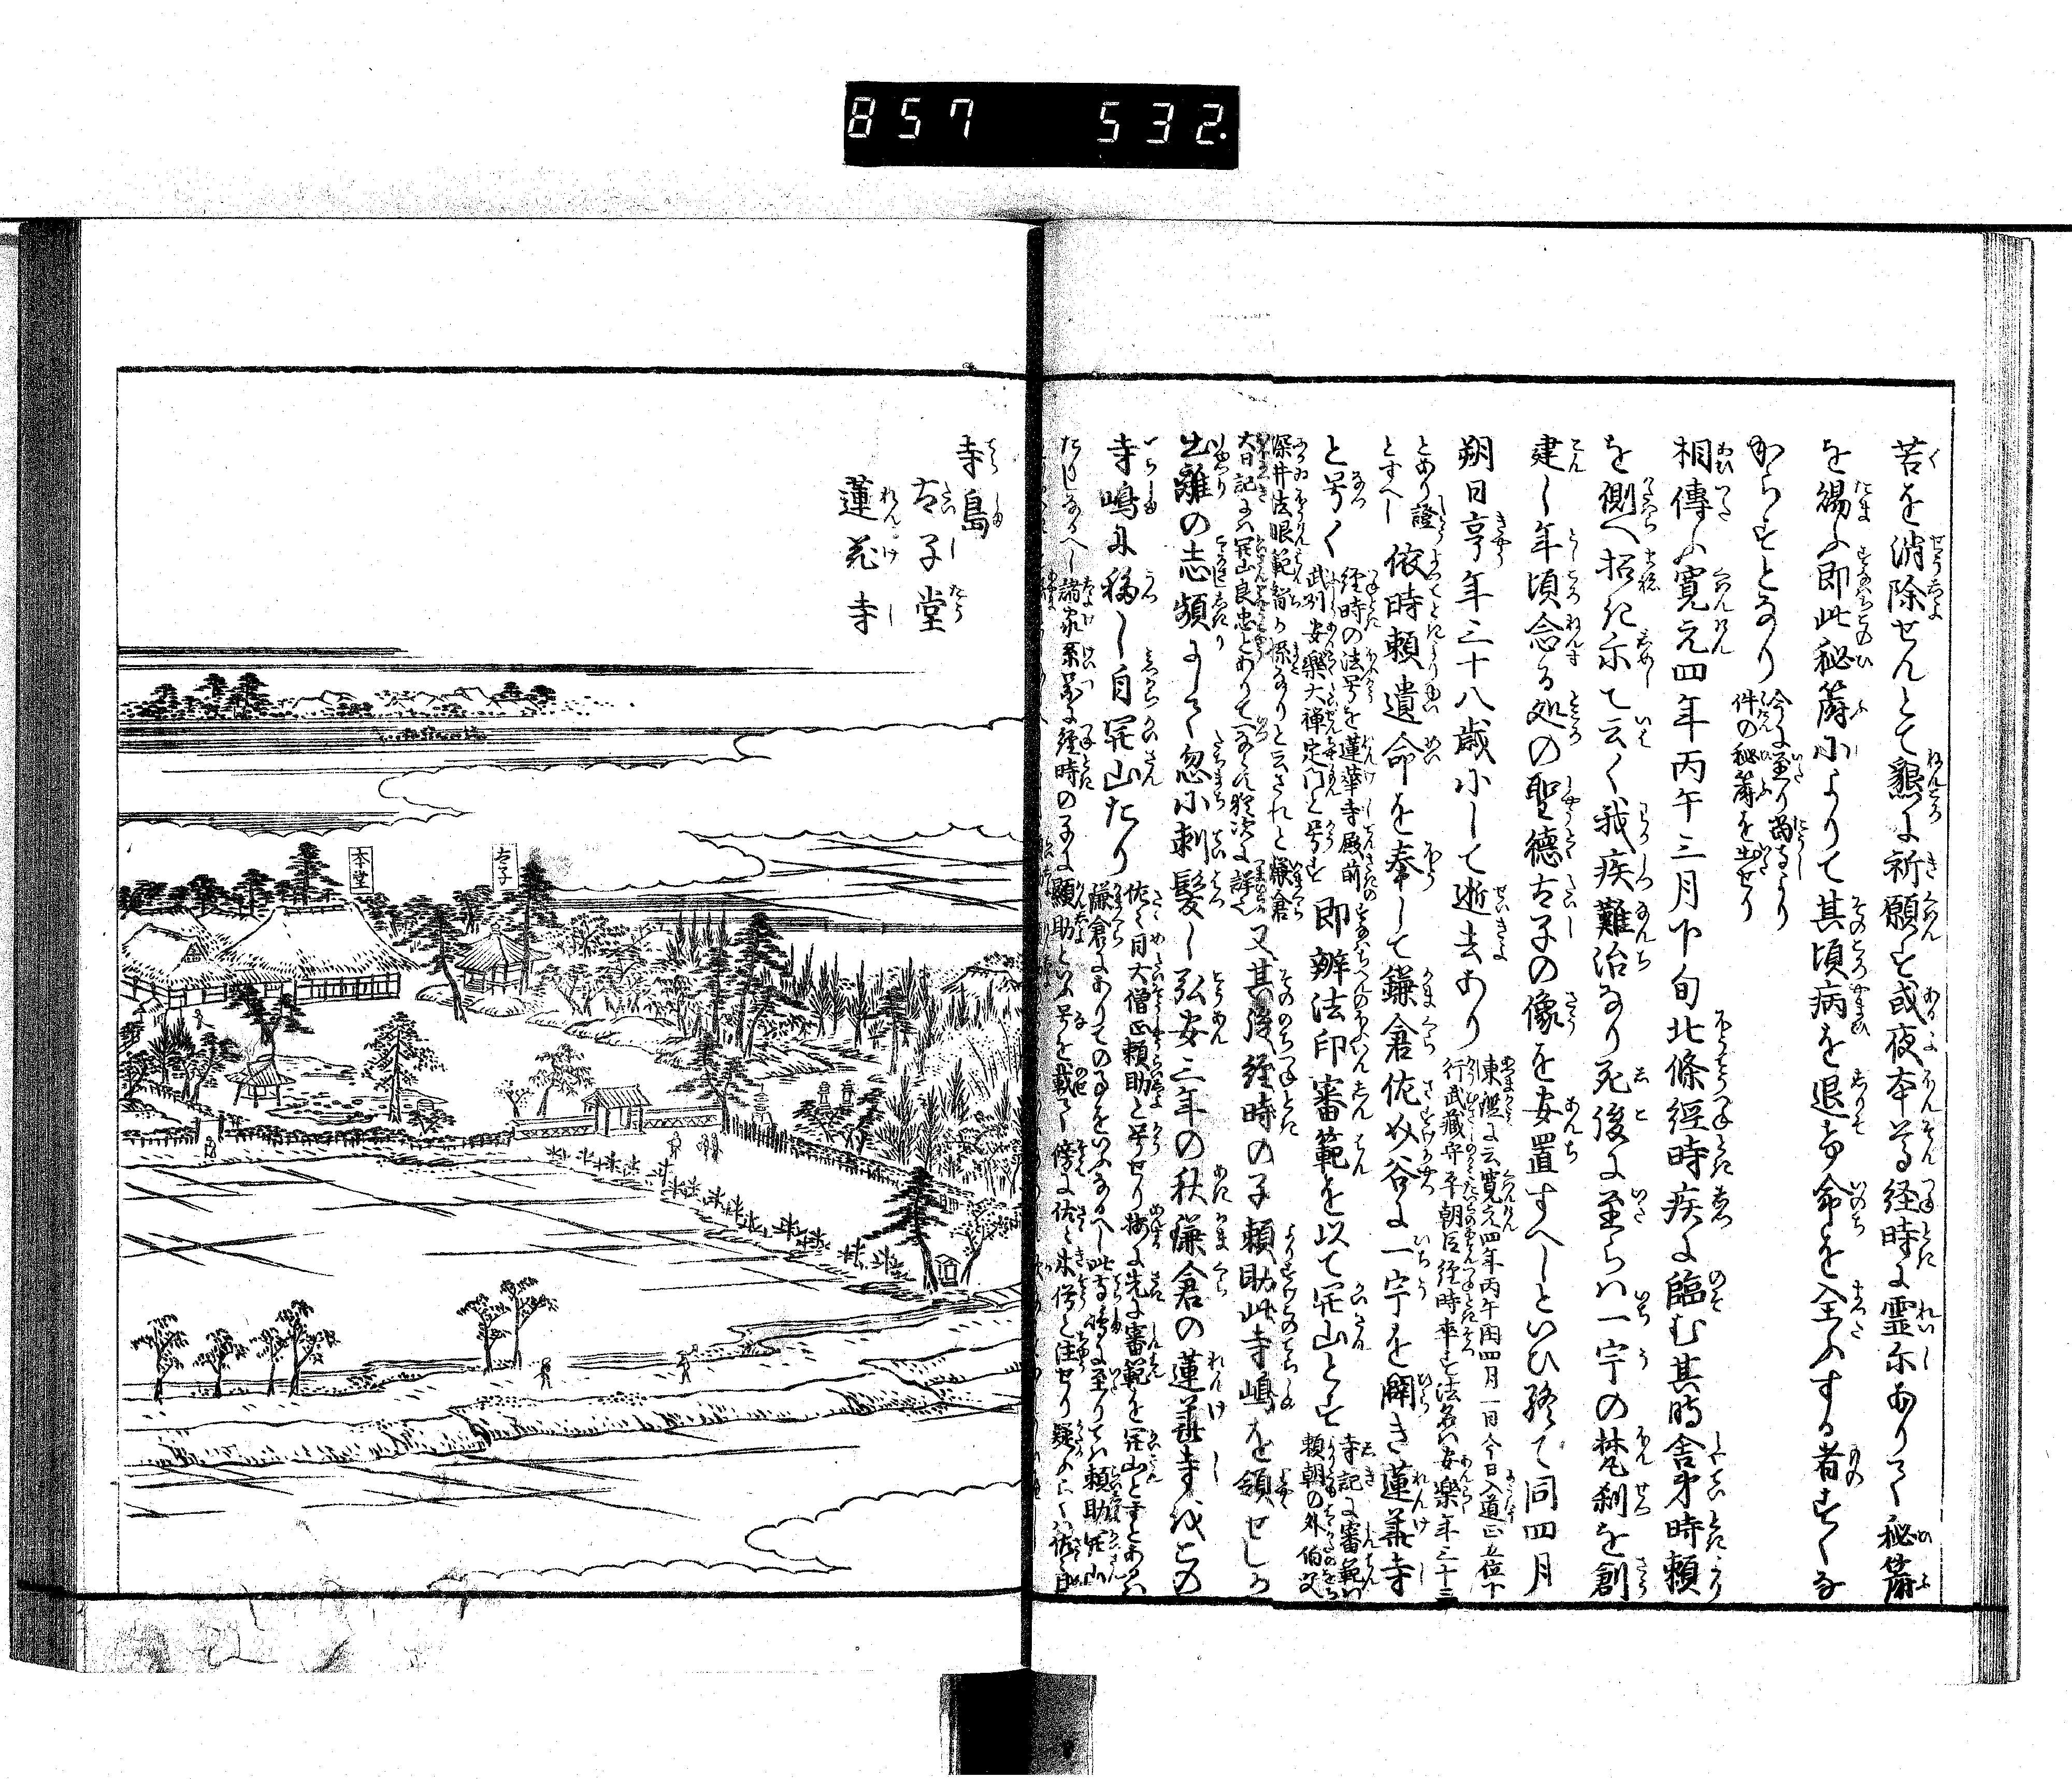 857 532.
苦を消除せんとて懇に祈願す或夜本尊経時に霊示ありて秘符
を賜ふ即此秘符によりて其頃病を退け命を全ふする者すくな
からすとなり
今に至り尚寺より
件の秘符を出せり
相傳ふ寛元四年丙午三月下旬北條經時疾に臨む其時舎弟時頼
を側へ招き示て云く我疾難治なり死後に至らハ一宇の梵刹を創
建し年頃念る処の聖徳太子の像を安置すへしといひ終て同四月
朔日享年三十八歳にして逝去あり
東鑑に云寛元四年丙午閏四月一日今日入道正五位下
行武藏守平朝臣経時卒す法名ハ安楽年三十三
とあり證
とすへし
依時頼遺命を奉して鎌倉佐々目谷に一宇を闢き蓮華寺
と号く
経時の法号を蓮華寺殿前
武州安樂大禅定門と号す
即辨法印審範を以て開山とす
寺記に審範ハ
頼朝の外伯父
深井法眼範智の孫なりと云されと鎌倉
大日記にハ開山良忠とありて
又其後経時の子頼助此寺嶋を領せしか
出離の志頻にして忽に剃髪し弘安三年の秋鎌倉の蓮華寺を此
寺嶋に移し自開山たり
佐々目大僧正頼助と号せり按に先に審範を開山とすとあるハ
鎌倉にありての事をいふなるへし此寺嶋に至りてハ頼助開山
たりしなるへし諸家系圖に経時の子に顯助といふ号を載て傍に佐々木僧と注せり疑ふらくハ佐々目
寺島
太子堂
蓮花寺
太子
本堂